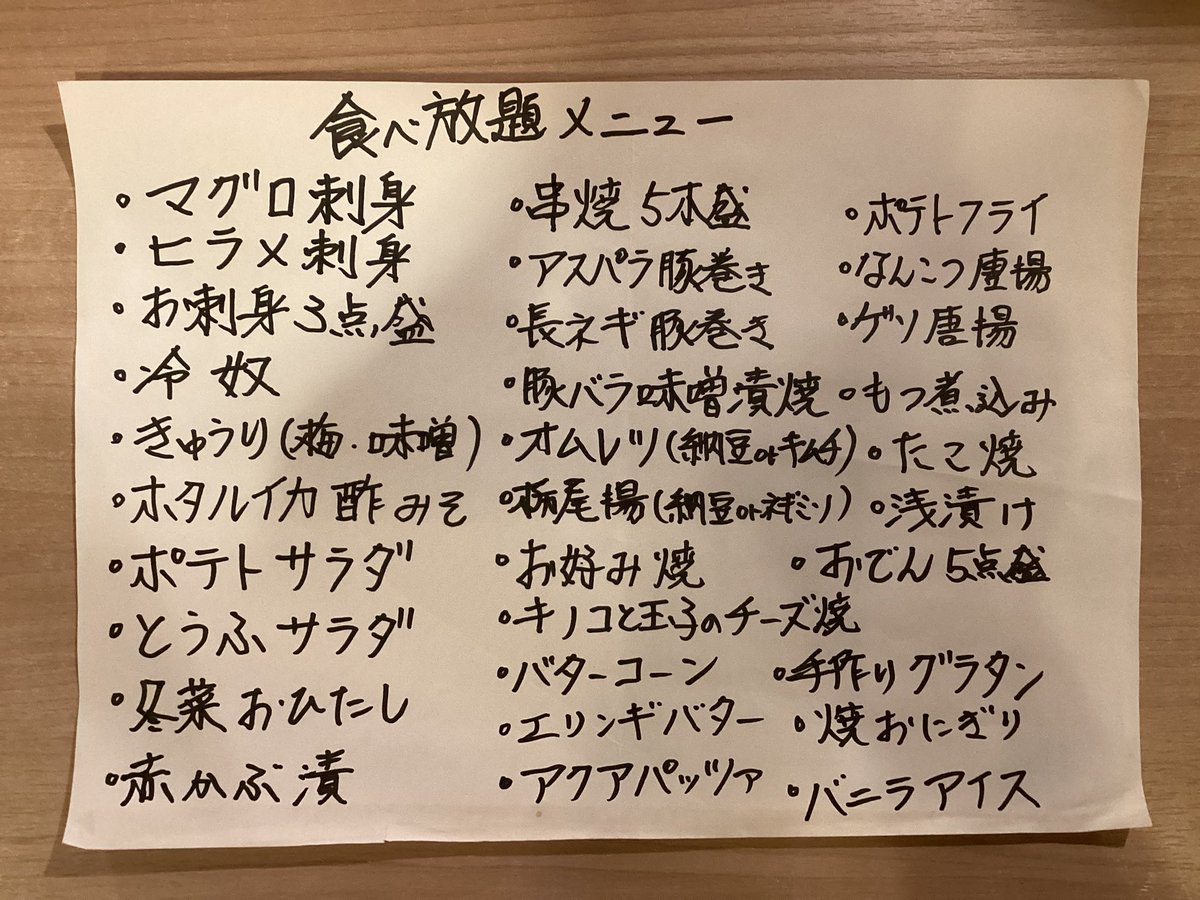 食べ放題メニュー
・マグロ刺身
・ヒラメ刺身
・お刺身3点盛
・冷奴
・きゅうり(梅・味噌)
・ホタルイカ酢みそ
・ポテトサラダ
・とうふサラダ
・冬菜おひたし
・赤かぶ漬
・串焼5本盛
・アスパラ豚巻き
・長ネギ豚巻き
・豚バラ味噌漬焼
・オムレツ(納豆orキムチ)
・栃尾揚(納豆orネギミソ)
・お好み焼
・キノコと玉子のチーズ焼
・バターコーン
・エリンギバター
・アクアパッツァ
・ポテトフライ
・なんこつ唐揚
・ゲソ唐揚
・もつ煮込み
・たこ焼
・浅漬け
・おでん5点盛
・手作りグラタン
・焼おにぎり
・バニラアイス